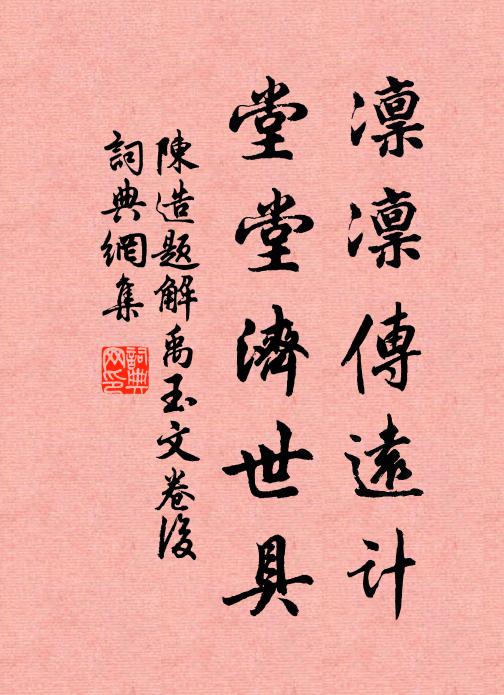 凛凛傳遠計
堂堂濟世具
陳造題解禹玉文卷後
詞典網集
詞典網印